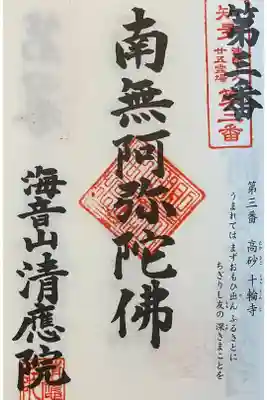 第三番
第三番 高砂 十輪寺
うまれては まずおもひ出ん ふるさとに
ちぎりし友の 深きまことを
南無阿弥陀佛
海音山清應院